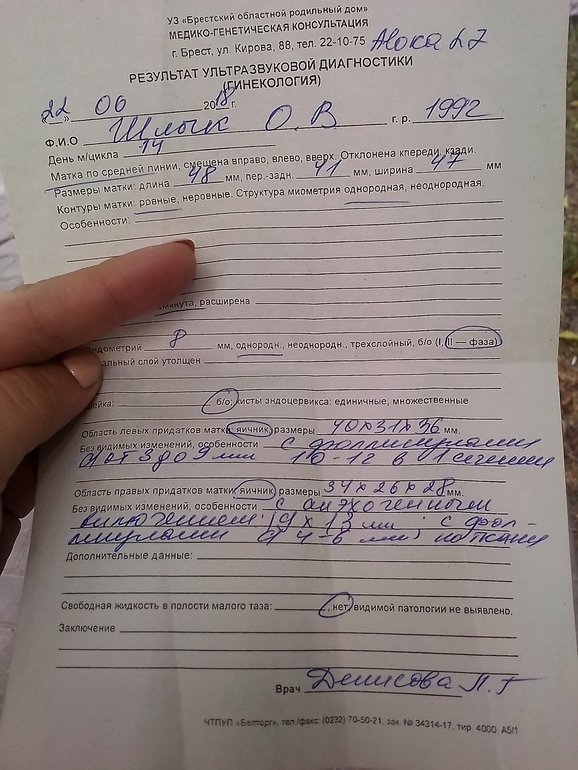 УЗ «Брестский областной родильный дом»
МЕДИКО-ГЕНЕТИЧЕСКАЯ КОНСУЛЬТАЦИЯ
г. Брест, ул. Кирова, 88, тел. 22-10-75 Алока 27
РЕЗУЛЬТАТ УЛЬТРАЗВУКОВОЙ ДИАГНОСТИКИ
(ГИНЕКОЛОГИЯ)
«22» 06 2018 г.
Ф.И.О Шлык О. В г. р. 1992
День м/цикла 14
Матка по средней линии, смещена вправо, влево, вверх. Отклонена кпереди, кзади.
Размеры матки: длина 48 мм, пер.-задн. 41 мм, ширина 47 мм
Контуры матки: ровные, неровные. Структура миометрия однородная, неоднородная.
Особенности:
мкнута, расширена
ндометрий 8 мм, однородн., неоднородн., трехслойный, б/о (I, II — фаза)
альный слой утолщен
ейка: б/о; кисты эндоцервикса: единичные, множественные
Область левых придатков матки: яичник, размеры 40х31х36 мм.
Без видимых изменений, особенности с фолликулами
d от 3 до 9 мм 10-12 в 1 сечении
Область правых придатков матки: яичник, размеры 34х26х28 мм.
Без видимых изменений, особенности с анэхогенным
включением 19х13 мм с фол-
ликулами d 4-6 мм по ткани
Дополнительные данные:
Свободная жидкость в полости малого таза: , нет, видимой патологии не выявлено.
Заключение
Врач Денисова Л.Г
ЧТПУП «Белторг», тел./факс: (0232) 70-50-21, зак. № 34314-17, тир. 4000, А5/1